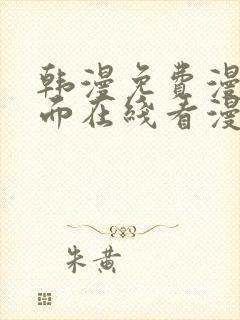 韩漫免费漫
而在线看漫
朱黄